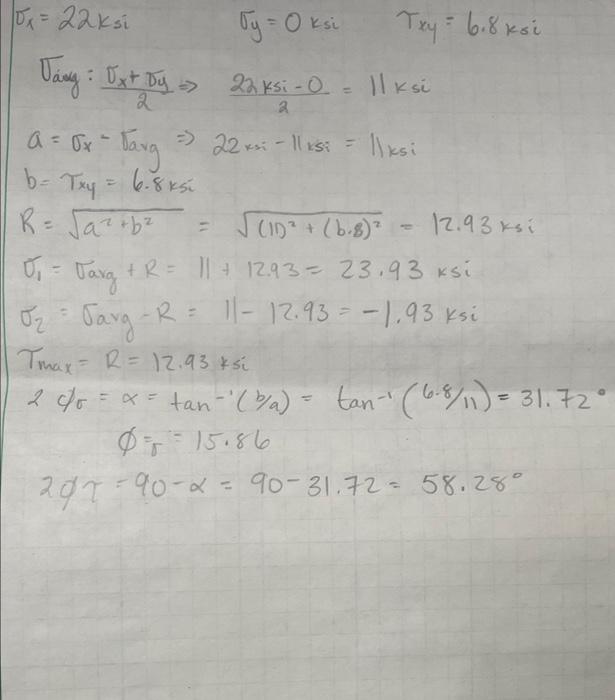 σx = 22 ksi σy = 0 ksi τxy = 6.8 ksi
σavg : σx + σy / 2 ⇒ 22 ksi - 0 / 2 = 11 ksi
a = σx - σavg ⇒ 22 ksi - 11 ksi = 11 ksi
b = τxy = 6.8 ksi
R = √(a² + b²) = √((11)² + (6.8)²) = 12.93 ksi
σ1 = σavg + R = 11 + 12.93 = 23.93 ksi
σ2 = σavg - R = 11 - 12.93 = -1.93 ksi
τmax = R = 12.93 ksi
2 φσ = α = tan⁻¹(b/a) = tan⁻¹(6.8/11) = 31.72°
φσ = 15.86
2φτ = 90 - α = 90 - 31.72 = 58.28°